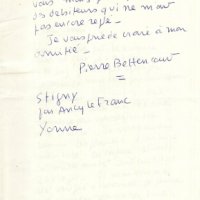 vous
os débiteurs qui ne m'ont
pas encore réglé _
Je vous prie de croire à mon
amitié _
Pierre Bettencourt
Stigny
par Ancy le Franc
Yonne